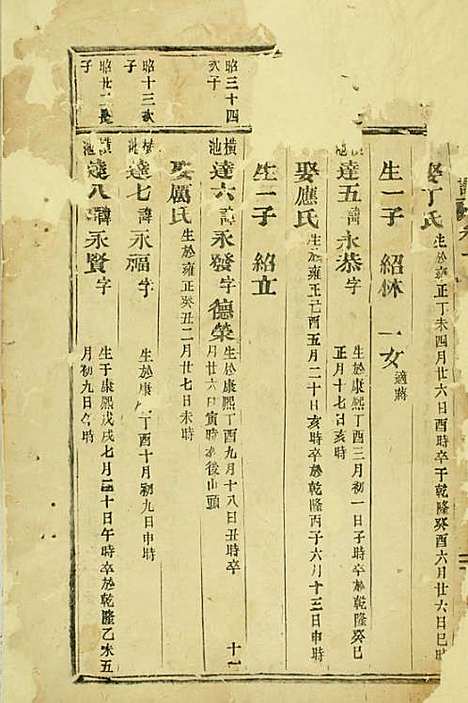 娶丁氏 生於雍正丁未四月廿六日酉時卒于乾隆癸酉六月廿六日巳時
生一子 紹林 一女 適蔣
達五 諱永恭字 生於康熙丁酉三月初一日子時卒於乾隆癸巳
正月十七日亥時
娶應氏 生於雍正己酉五月二十日亥時卒於乾隆丙子六月十三日申時
生一子 紹立
昭三十四
次子
橫池
達六 諱永發字德榮 生於康熙丁酉九月十八日丑時卒
月廿六日寅時 後山頭
十一
娶厲氏 生於雍正癸丑二月廿七日未時
昭十三次
子
達七 諱永福字 生於康 丁酉十月初九日申時
昭廿二長
子
池
達八 諱永賢字 生于康熙戊戌七月三十日午時卒於乾隆乙未五
月初九日 時